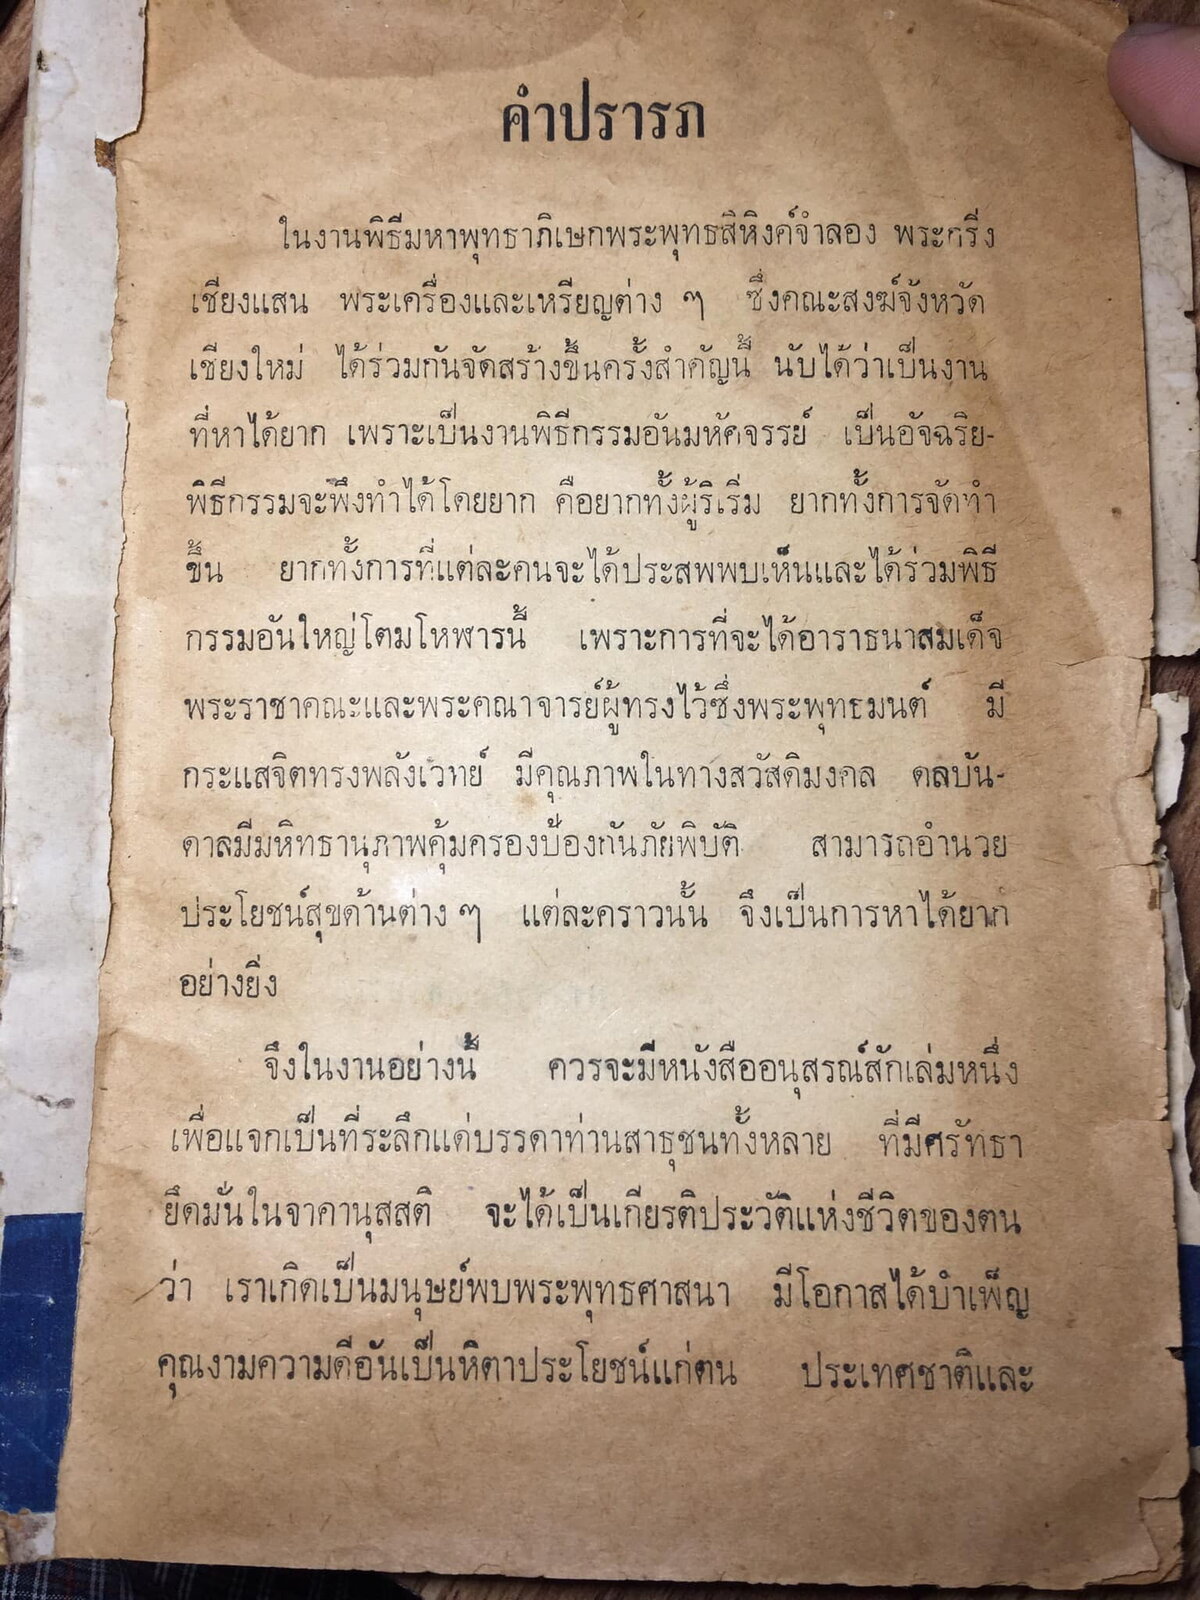 คำปรารภ
ในงานพิธีมหาพุทธาภิเษกพระพุทธสิหิงค์จำลอง พระกริ่ง
เชียงแสน พระเครื่องและเหรียญต่าง ๆ ซึ่งคณะสงฆ์จังหวัด
เชียงใหม่ ได้ร่วมกันจัดสร้างขึ้นครั้งสำคัญนี้ นับได้ว่าเป็นงาน
ที่หาได้ยาก เพราะเป็นงานพิธีกรรมอันมหัศจรรย์ เป็นอัจฉริย-
พิธีกรรมจะพึงทำได้โดยยาก คือยากทั้งผู้ริเริ่ม ยากทั้งการจัดทำ
ขึ้น ยากทั้งการที่แต่ละคนจะได้ประสพพบเห็นและได้ร่วมพิธี
กรรมอันใหญ่โตมโหฬารนี้ เพราะการที่จะได้อาราธนาสมเด็จ
พระราชาคณะและพระคณาจารย์ผู้ทรงไว้ซึ่งพระพุทธมนต์ มี
กระแสจิตทรงพลังเวทย์ มีคุณภาพในทางสวัสดิมงคล ดลบัน-
ดาลมีมหิทธานุภาพคุ้มครองป้องกันภัยพิบัติ สามารถอำนวย
ประโยชน์สุขด้านต่าง ๆ แต่ละคราวนั้น จึงเป็นการหาได้ยาก
อย่างยิ่ง
จึงในงานอย่างนี้ ควรจะมีหนังสืออนุสรณ์สักเล่มหนึ่ง
เพื่อแจกเป็นที่ระลึกแด่บรรดาท่านสาธุชนทั้งหลาย ที่มีศรัทธา
ยึดมั่นในจาคานุสสติ จะได้เป็นเกียรติประวัติแห่งชีวิตของตน
ว่า เราเกิดเป็นมนุษย์พบพระพุทธศาสนา มีโอกาสได้บำเพ็ญ
คุณงามความดีอันเป็นหิตาประโยชน์แก่ตน ประเทศชาติและ